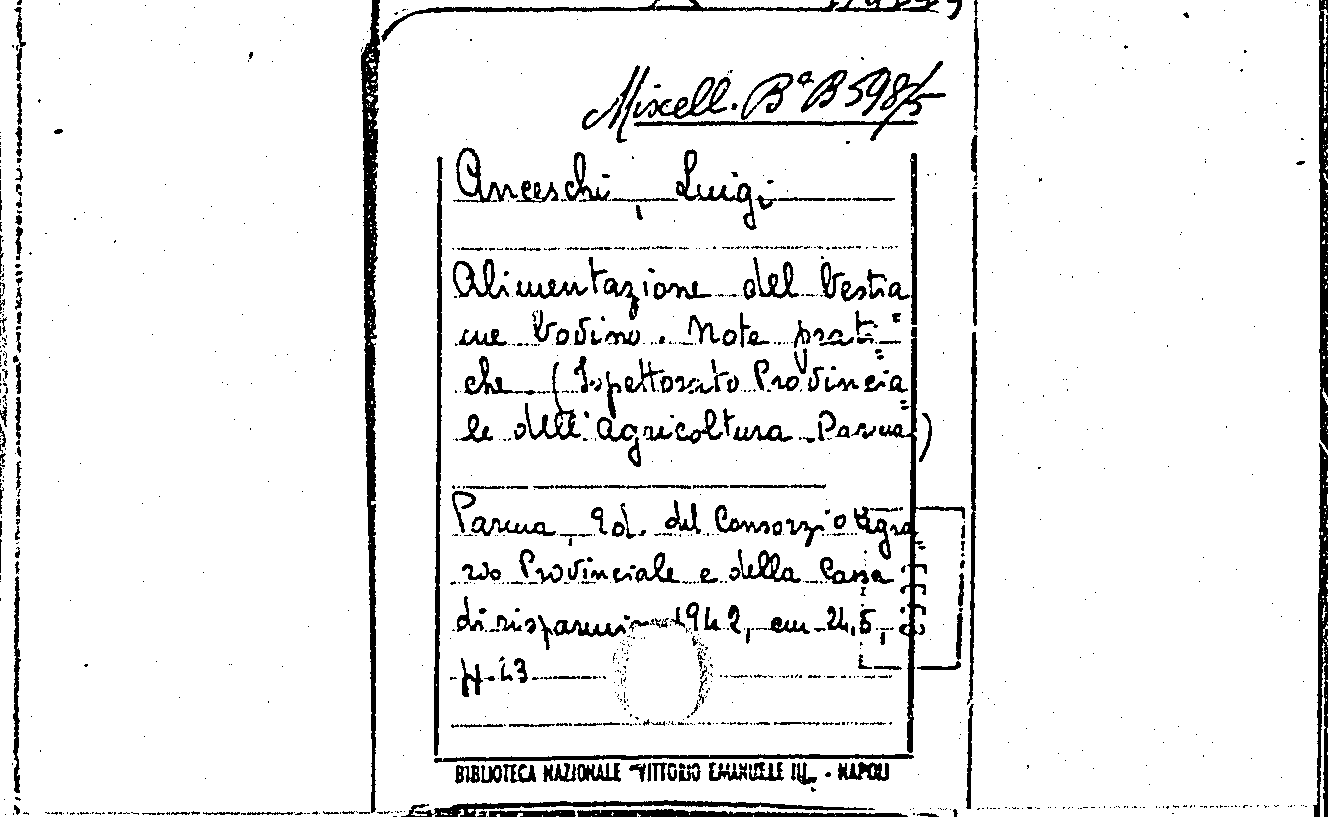 Miscell. Bª B 598/5
Anceschi, Luigi
Alimentazione del bestia
me bovino. Note prati=
che (Ispettorato Provincia=
le dell'agricoltura Parma)
Parma, Ed. del Consorzio agra=
rio Provinciale e della Cassa
di risparmio 1942, cm 24,5,
p. 23
BIBLIOTECA NAZIONALE "VITTORIO EMANUELE III" - NAPOLI